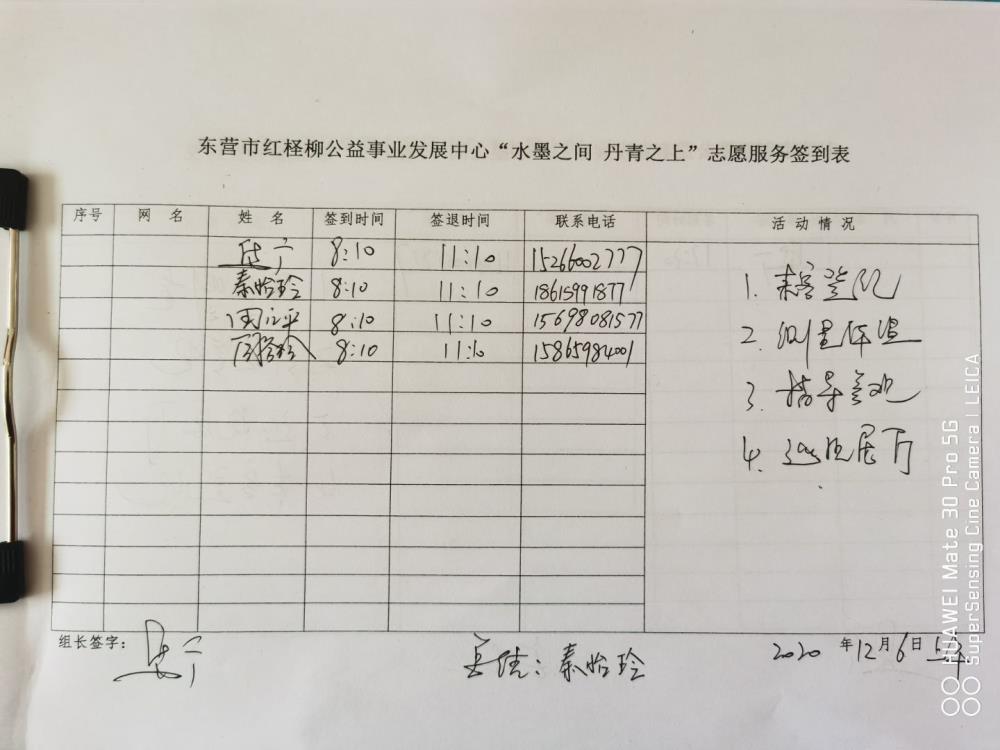 东营市红柽柳公益事业发展中心“水墨之间 丹青之上”志愿服务签到表
序号 网 名 姓 名 签到时间 签退时间 联系电话 活 动 情 况
8:10 11:10 15266002777
秦怡玲 8:10 11:10 18615991877
周立平 8:10 11:10 15698081577
8:10 11:10 15865984001
1. 来宾登记
2. 测量体温
3. 指导参观
4.
组长签字:
秦怡玲
2020 年12月6日 上午
HUAWEI Mate 30 Pro 5G
SuperSensing Cine Camera | LEICA